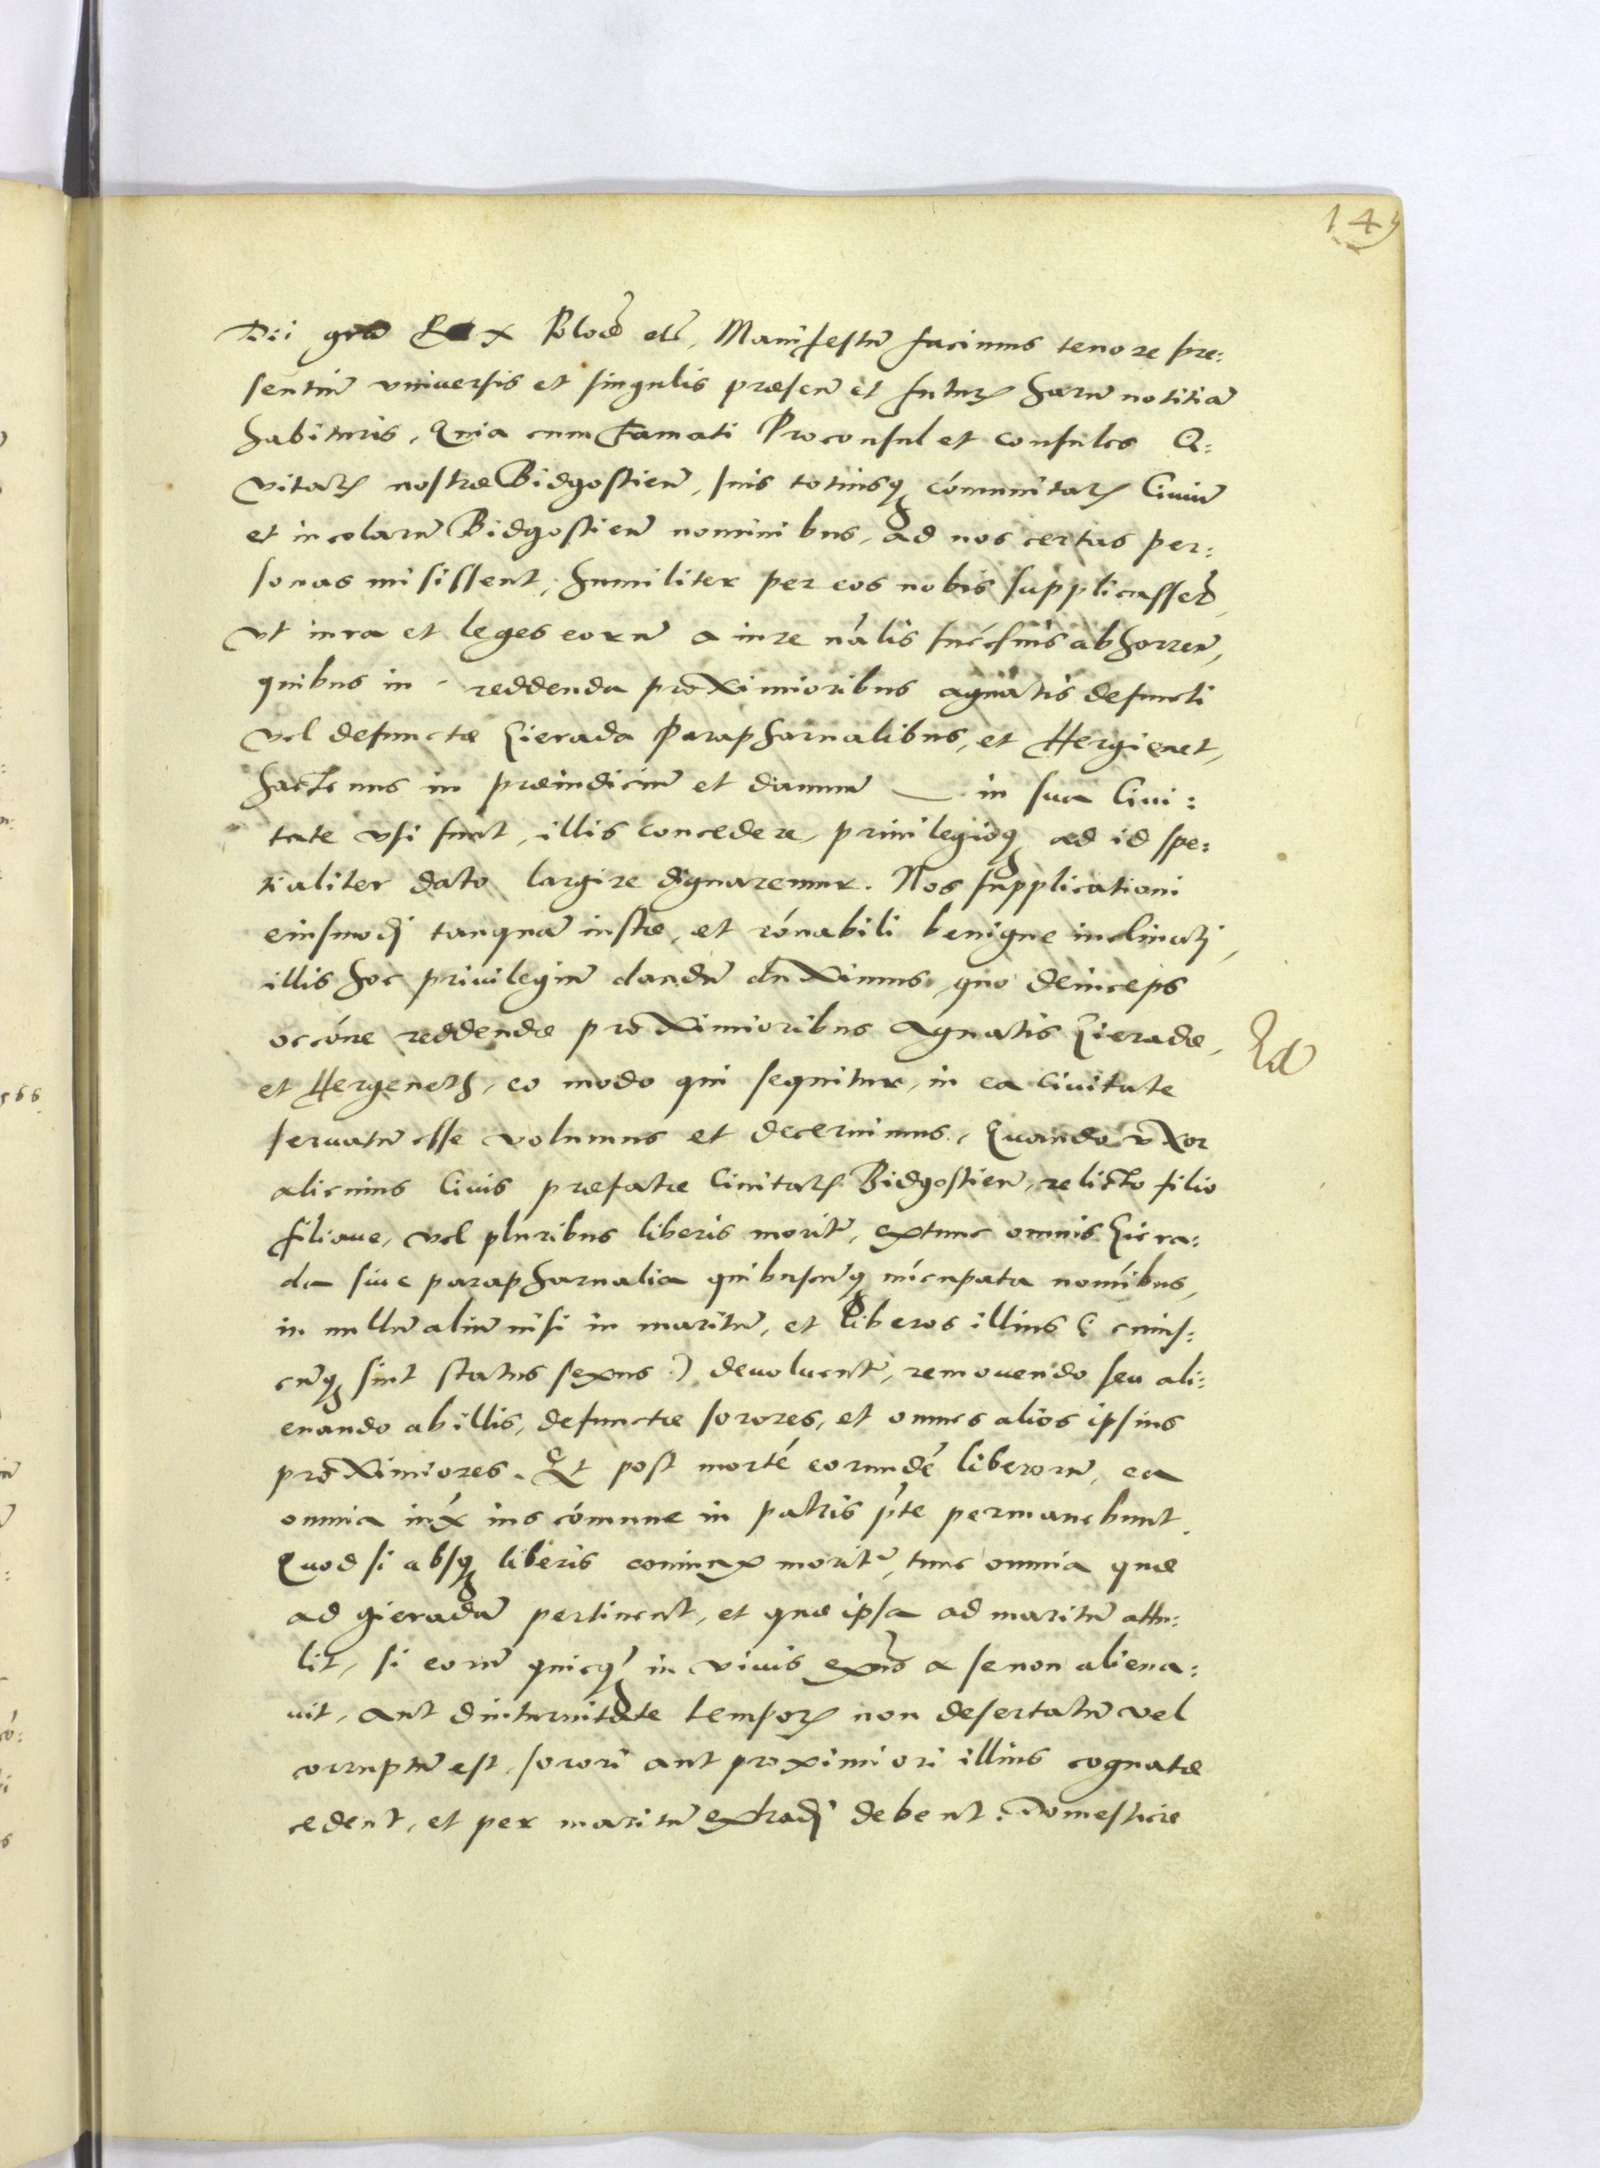 149
Dei gra Rex Polo etc, Manifestu facimus tenore pre:
sentiu vniuersis et singulis praesen et futur haru notitia
habituris, Quia cum Famati Proconsul et Consules Ci:
vitat nostrae Bidgostien, suis totiusq cómunitat Ciuiu
et incolaru Bidgostien nominibus, ad nos certas per:
sonas misissent, humiliter per eos nobis supplicassed,
vt iura et leges eoru a iure nális abhorren,
quibus in reddenda proximioribus agnatis defuncti
vel defunctae Gierada Parapharnalibus, et Hergienet,
hactenus in praeiudiciu et damnu in sua Ciui:
tate vsi sunt, illis concedere, priuilegioq ad id spe:
tialiter dato largire dignaremur. Nos supplicationi
eiusmodi tanqua iustae, et rónabili benigne inclinati,
illis hoc priuilegiu dandu duximus, quo deinceps
occóne reddendae proximioribus agnatis Gieradae,
et Hergeneth, eo modo qui sequitur, in ea Ciuitate
seruatu esse volumus et decernimus. Quando vxor
alicuius Ciuis praefatae Ciuitat Bidgostien, relicto filio
filiaue, vel pluribus liberis morit, extunc omnis Giera:
da siue parapharnalia quibuscuq nucupata nomíbus,
in nullu aliu nisi in maritu, et liberos illius ( cuius:
cuq sint status sexus ) deuoluent, remouendo seu ali:
enando ab illis, defunctae sorores, et omnes alios ipsius
proximiores. Et post morté eorundé liberoru, ea
omnia iux ius cómune in patris pte permanebunt.
Quod si absq liberis coniunx morit, tunc omnia quae
ad gieradam pertinent, et quae ipsa ad maritu attu:
lit, si eoru quicq in viuis exns a se non aliena:
uit, aut diuturnitate tempor non desertatu vel
corruptu est, sorori aut proximiori illius cognatae
cedent, et per maritu extradi debent. Domesticae